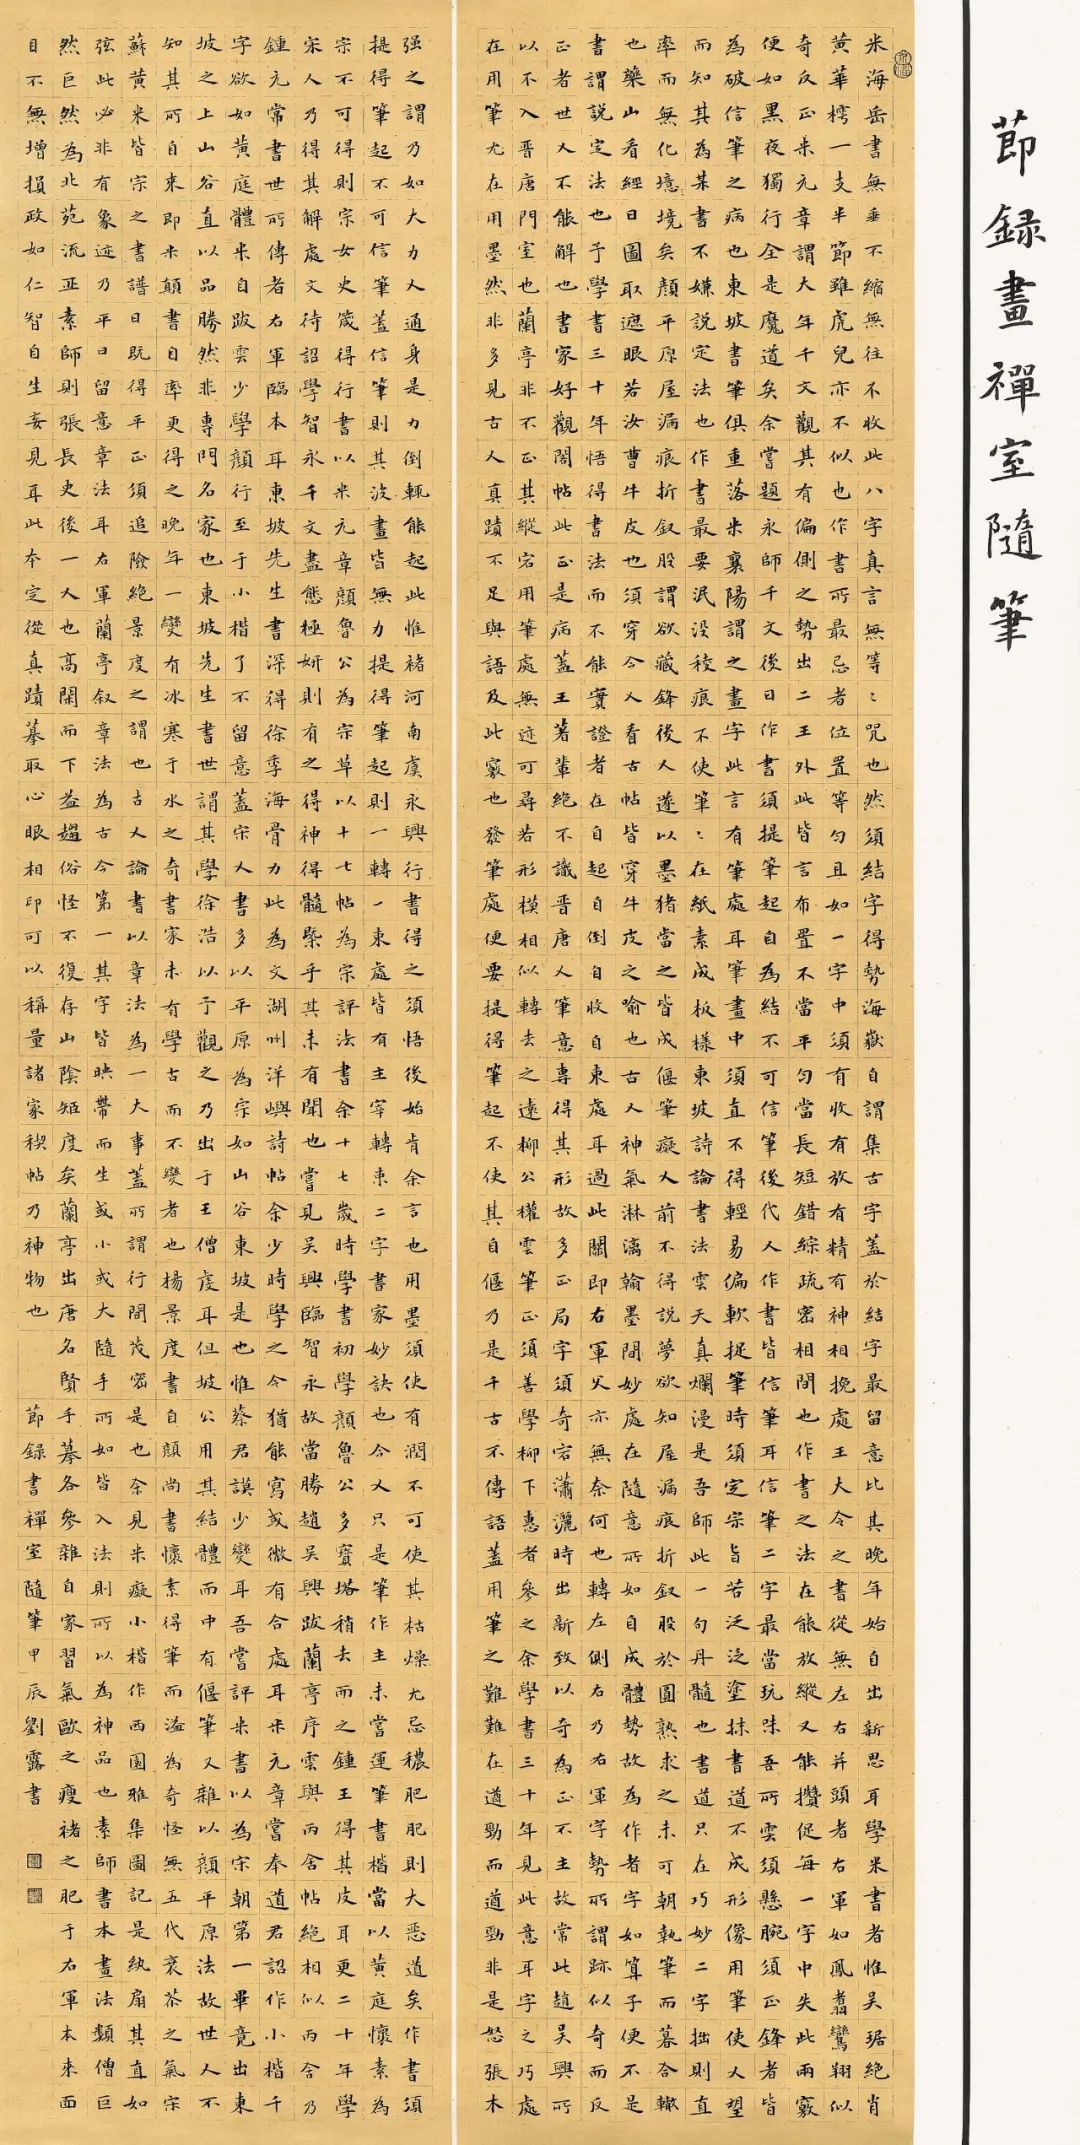 節録畫禪室隨筆
米海岳書無垂不縮無往不收此八字真言無等〻咒也然須結字得勢海嶽自謂集古字蓋於結字最留意比其晚年始自出新思耳學米書者惟吴琚絶肖
黃華樗一支半節雖虎兒亦不似也作書所最忌者位置等勻且如一字中須有收有放有精有神相挽處王大令之書從無左右并頭者右軍如鳳翥鸞翔似
奇反正米元章謂大年千文觀其有偏側之勢出二王外此皆言布置不當平勻當長短錯綜疏密相間也作書之法在能放縱又能攢促每一字中失此兩竅
便如黑夜獨行全是魔道矣余嘗題永師千文後曰作書須提筆起自為結不可信筆後代人作書皆信筆耳信筆二字最當玩味吾所雲須懸腕須正鋒者皆
為破信筆之病也東坡書筆俱重落米襄陽謂之畫字此言有筆處耳筆畫中須直不得輕易偏軟捉筆時須定宗旨若泛泛塗抹書道不成形像用筆使人望
而知其為某書不嫌說定法也作書最要泯没稜痕不使筆〻在紙素成板樣東坡詩論書法雲天真爛漫是吾師此一句丹髓也書道只在巧妙二字拙則直
率而無化境境矣顏平原屋漏痕折釵股謂欲藏鋒後人遂以墨豬當之皆成偃筆癡人前不得說夢欲知屋漏痕折釵股於圓熟求之未可朝執筆而暮合轍
也藥山看經曰圖取遮眼若汝曹牛皮也須穿今人看古帖皆穿牛皮之喻也古人神氣淋漓翰墨間妙處在隨意所如自成體勢故為作者字如算子便不是
書謂說定法也予學書三十年悟得書法而不能實證者在自起自倒自收自束處耳過此關即右軍父亦無奈何也轉左側右乃右軍字勢所謂跡似奇而反
正者世人不能解也書家好觀閣帖此正是病蓋王著輩絶不識晋唐人筆意專得其形故多正局字須奇宕瀟灑時出新致以奇為正不主故常此趙吴興所
以不入晋唐門室也蘭亭非不正其縱宕用筆處無迹可尋若形模相似轉去之遠柳公權雲筆正須善學柳下惠者參之余學書三十年見此意耳字之巧處
在用筆尤在用墨然非多見古人真蹟不足與語及此竅也發筆處便要提得筆起不使其自偃乃是千古不傳語蓋用筆之難難在遒勁而遒勁非是怒張木
强之謂乃如大力人通身是力倒輒能起此惟褚河南虞永興行書得之須悟後始肯余言也用墨須使有潤不可使其枯燥尤忌穠肥肥則大惡道矣作書須
提得筆起不可信筆蓋信筆則其波畫皆無力提得筆起則一轉一束處皆有主宰轉束二字書家妙訣也今人只是筆作主未嘗運筆書楷當以黃庭懷素為
宗不可得則宗女史箴得行書以米元章顏魯公為宗草以十七帖為宗評法書余十七歲時學書初學顏魯公多寶塔稍去而之鍾王得其皮耳更二十年學
宋人乃得其解處文待詔學智永千文盡態極妍則有之得神得髓槩乎其未有聞也嘗見吴興臨智永故當勝趙吴興跋蘭亭序雲與丙舍帖絶相似丙舍乃
鍾元常書世所傳者右軍臨本耳東坡先生書深得徐季海骨力此為文湖州洋嶼詩帖余少時學之今猶能寫或微有合處耳米元章嘗奉道君詔作小楷千
字欲如黃庭體米自跋雲少學顏行至于小楷了不留意蓋宋人書多以平原為宗如山谷東坡是也惟蔡君謨少變耳吾嘗評米書以為宋朝第一畢竟出東
坡之上山谷直以品勝然非專門名家也東坡先生書世謂其學徐浩以予觀之乃出于王僧虔耳但坡公用其結體而中有偃筆又雜以顏平原法故世人不
知其所自來即米顛書自率更得之晚年一變有冰寒于水之奇書家未有學古而不變者也楊景度書自顏尚書懷素得筆而溢為奇怪無五代衰苶之氣宗
蘇黃米皆宗之書譜曰既得平正須追險絶景度之謂也古人論書以章法為一大事蓋所謂行間茂密是也余見米癡小楷作西園雅集圖記是紈扇其直如
弦此必非有象迹乃平日留意章法耳右軍蘭亭叙章法為古今第一其字皆映帶而生或小或大隨手所如皆入法則所以為神品也素師書本畫法類僧巨
然巨然為北苑流亚素師則張長史後一人也高閑而下益趨俗怪不復存山陰矩度矣蘭亭出唐名賢手摹各參雜自家習氣歐之瘦褚之肥于右軍本來面
目不無增損政如仁智自生妄見耳此本定從真蹟摹取心眼相印可以稱量諸家禊帖乃神物也 節録書禪室隨筆甲辰劉露書